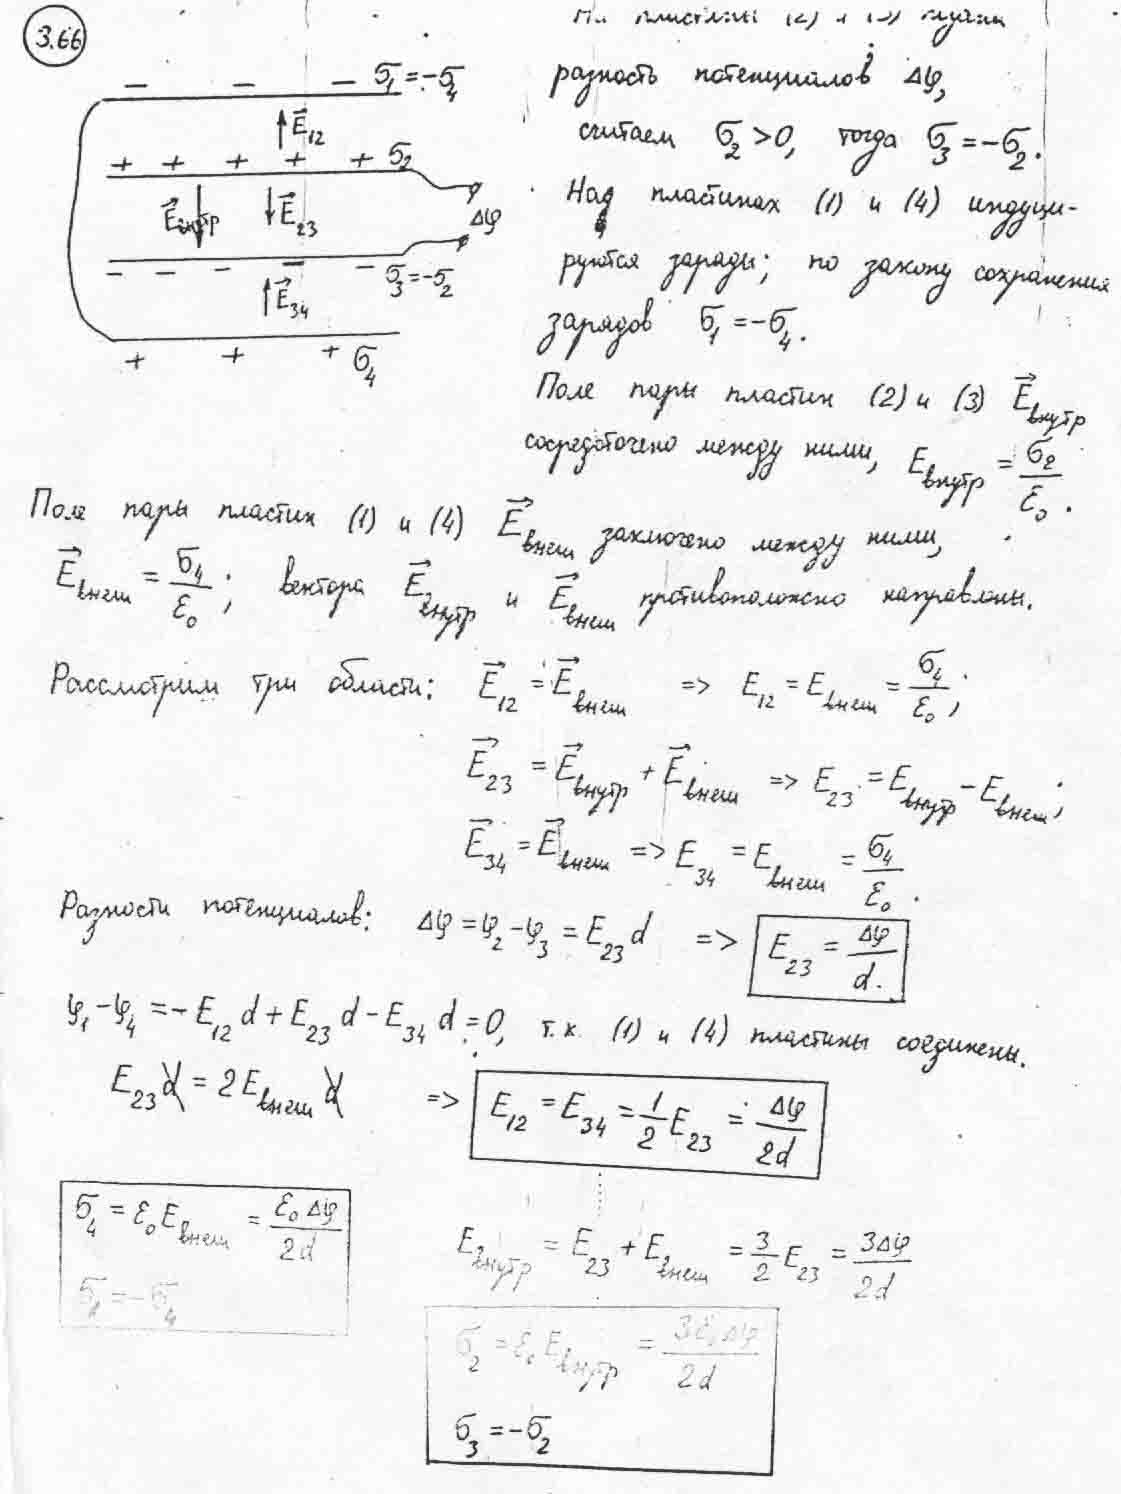 3.66
На пластины (2) и (3) подана
разность потенциалов Δφ,
считаем σ₂ > 0, тогда σ₃ = -σ₂.
Над пластинах (1) и (4) индуци-
руются заряды; по закону сохранения
зарядов σ₁ = -σ₄.
− − − σ₁ = -σ₄
E⃗₁₂
+ + + + + σ₂
E⃗внутр E⃗₂₃ Δφ
− − − − − σ₃ = -σ₂
E⃗₃₄
+ + + σ₄
Поле пары пластин (2) и (3) E⃗внутр
сосредоточено между ними, Eвнутр = σ₂/ε₀.
Поле пары пластин (1) и (4) E⃗внеш заключено между ними,
E⃗внеш = σ₄/ε₀; вектора E⃗внутр и E⃗внеш противоположно направлены.
Рассмотрим три области: E⃗₁₂ = E⃗внеш => E₁₂ = Eвнеш = σ₄/ε₀;
E⃗₂₃ = E⃗внутр + E⃗внеш => E₂₃ = Eвнутр - Eвнеш;
E⃗₃₄ = E⃗внеш => E₃₄ = Eвнеш = σ₄/ε₀.
Разности потенциалов: Δφ = φ₂ - φ₃ = E₂₃ d => E₂₃ = Δφ/d.
φ₁ - φ₄ = -E₁₂ d + E₂₃ d - E₃₄ d = 0, т.к. (1) и (4) пластины соединены.
E₂₃ d = 2 Eвнеш d => E₁₂ = E₃₄ = 1/2 E₂₃ = Δφ/2d
σ₄ = ε₀ Eвнеш = ε₀ Δφ/2d
σ₁ = -σ₄
Eвнутр = E₂₃ + Eвнеш = 3/2 E₂₃ = 3Δφ/2d
σ₂ = ε₀ Eвнутр = 3ε₀ Δφ/2d
σ₃ = -σ₂